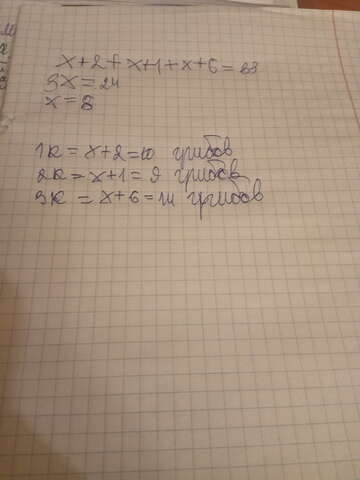 x+2+x+1+x+6=33
3x=24
x=8
1к=x+2=10 грибов
2к=x+1=9 грибов
3к=x+6=14 грибов